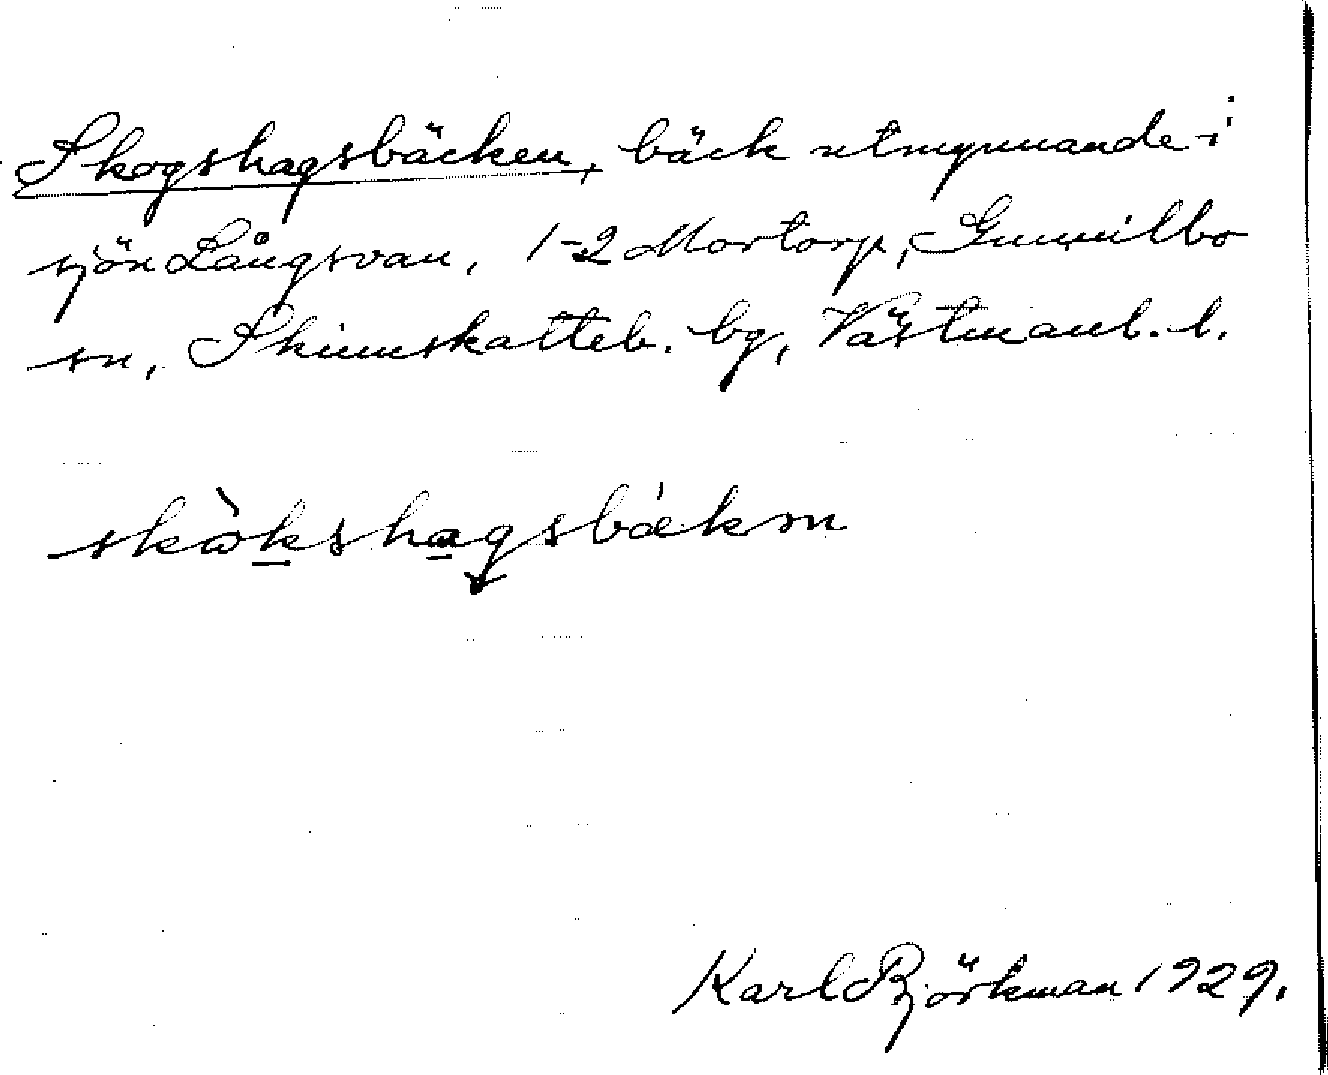 Skogshagsbäcken, bäck utmynnande i
sjön Långsvan, 1-2 Mortorp, Gunnilbo
sn, Skinnskatteb. bg, Västmanl. l.
skὼkshagsbækm
Karl Björkman 1929.